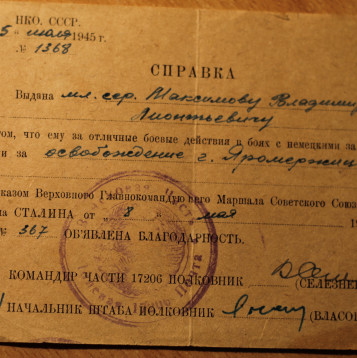 НКО. СССР.
5 " мая 1945 г.
№ 1368
СПРАВКА
Выдана мл. сер. Максимову Владимир
Леонтьевичу
том, что ему за отличные боевые действия в боях с немецкими за
и за освобождение г. Яромержиц
казом Верховного Главнокомандующего Маршала Советского Союз
на СТАЛИНА от „ 8 " мая 19
367 ОБ'ЯВЛЕНА БЛАГОДАРНОСТЬ.
КОМАНДИР ЧАСТИ 17206 ПОЛКОВНИК (СЕЛЕЗНЕ
НАЧАЛЬНИК ШТАБА ПОЛКОВНИК (ВЛАСО